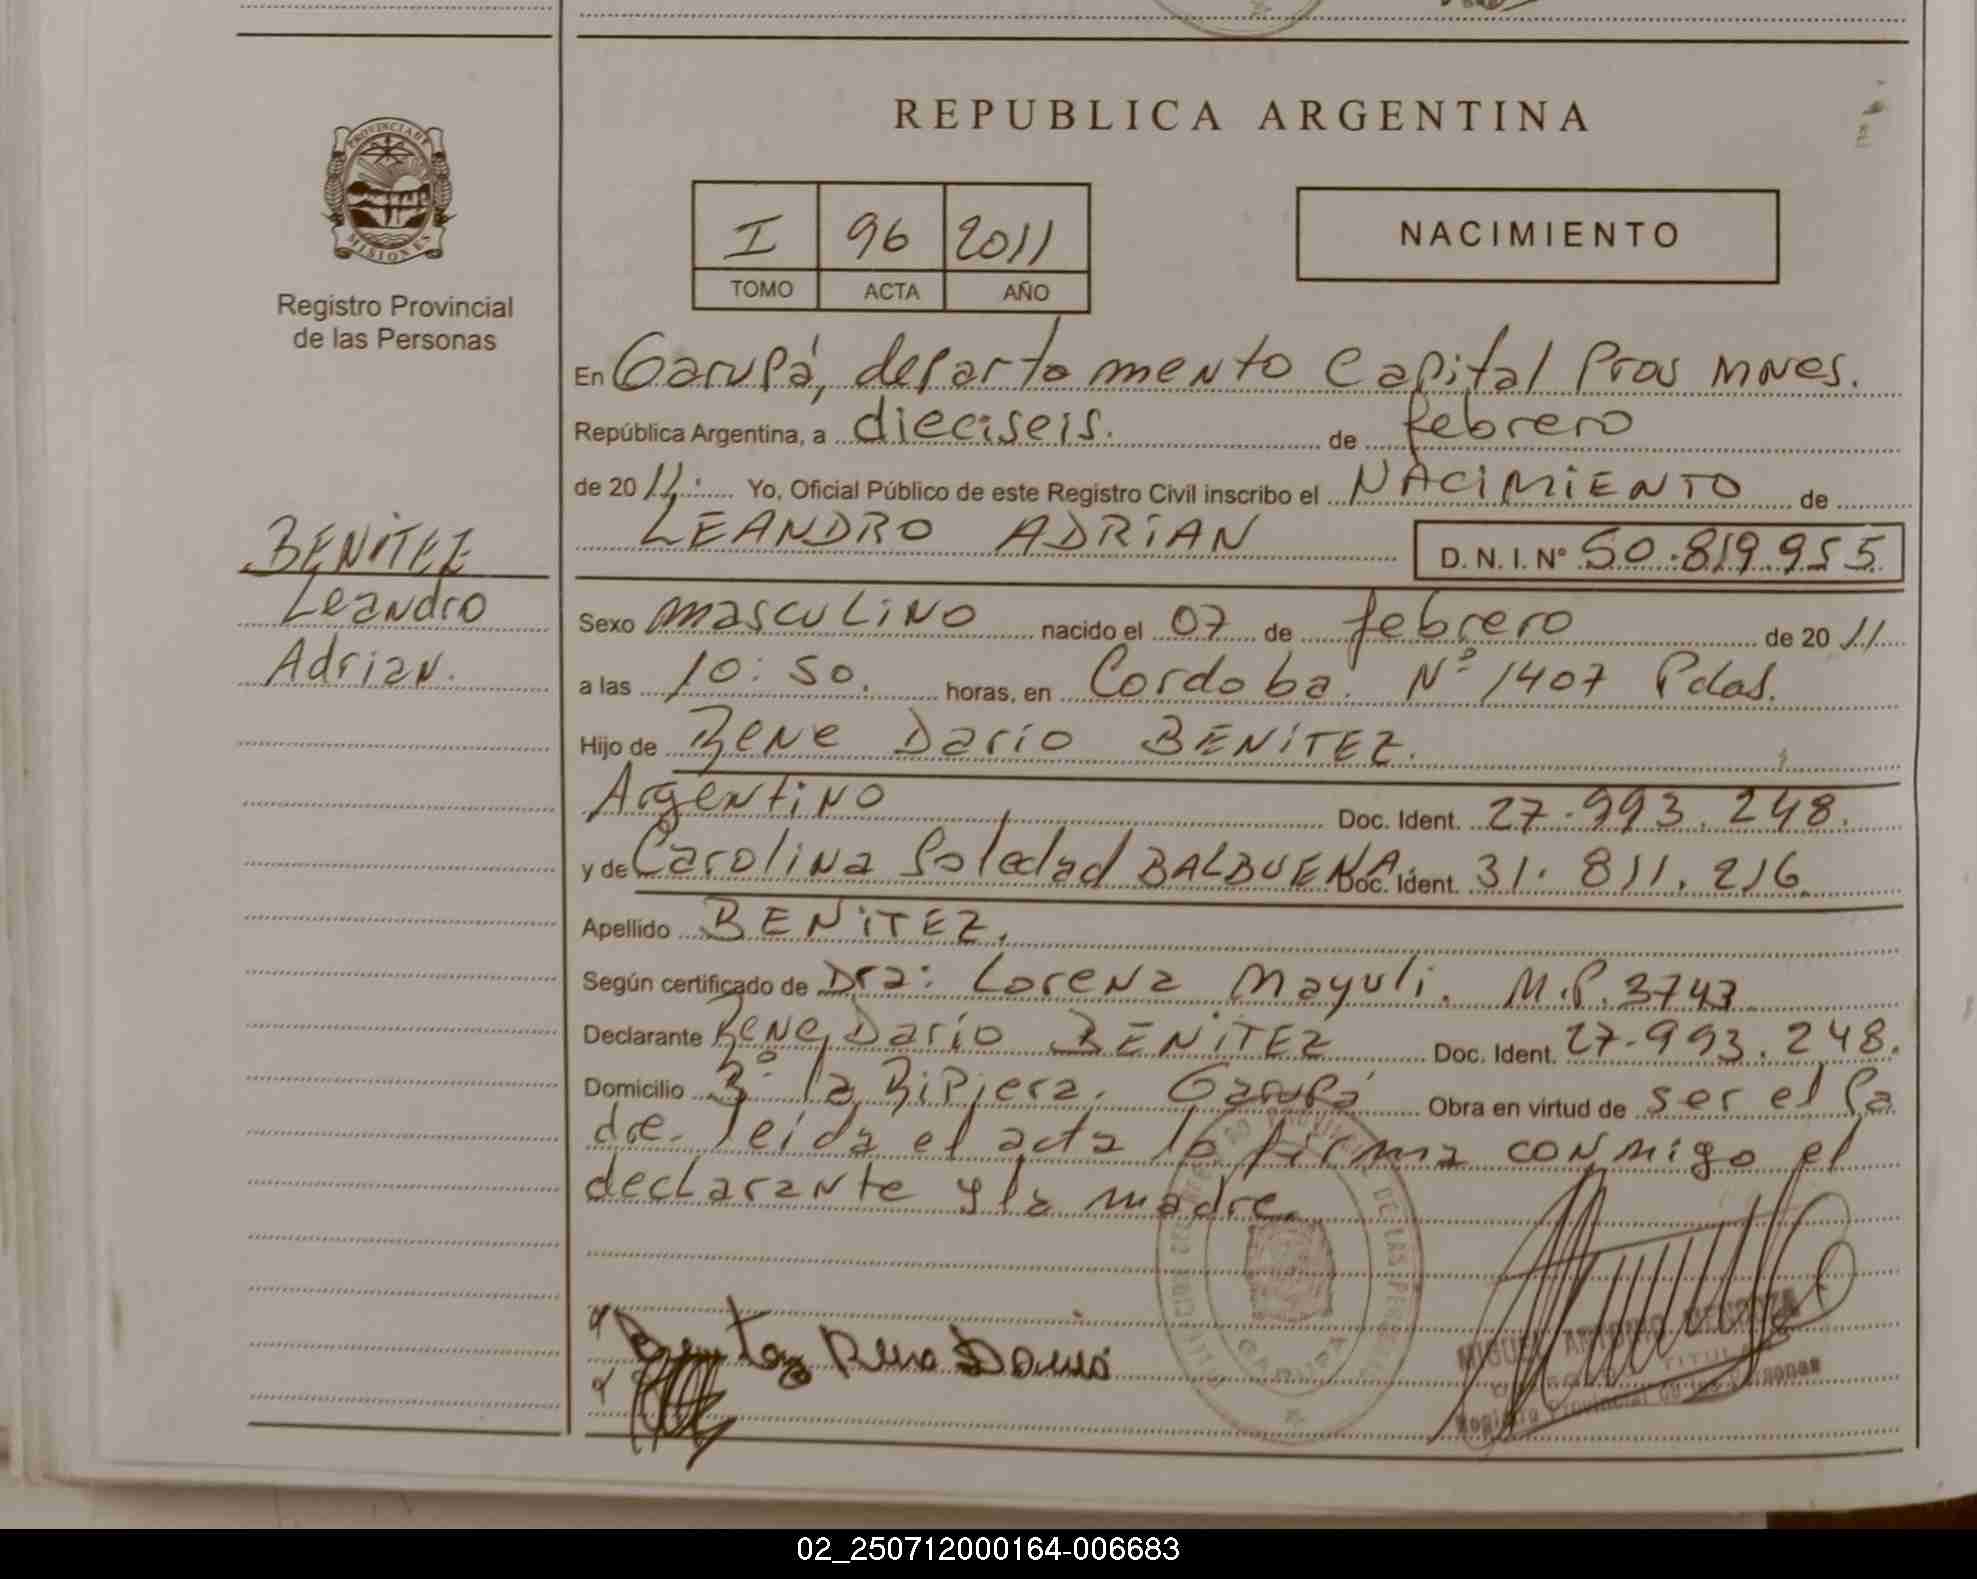 REPUBLICA ARGENTINA
PROVINCIA DE
MISIONES
Registro Provincial
de las Personas
I 96 2011
TOMO ACTA AÑO
NACIMIENTO
En Garupá, departamento Capital Pros MNes.
República Argentina, a dieciseis. de febrero
de 2011. Yo, Oficial Público de este Registro Civil inscribo el NACIMIENTO de
LEANDRO ADRIAN D. N. I. Nº 50.819.955
BENITEZ
Leandro
Adrian.
Sexo masculino nacido el 07 de febrero de 2011
a las 10:50. horas, en Cordoba. Nº 1407 Pdas.
Hijo de Rene Dario BENITEZ.
Argentino Doc. Ident. 27.993.248.
y de Carolina Soledad BALBUENA Doc. Ident. 31.811.216
Apellido BENITEZ.
Según certificado de Dra: Lorena Mayuli. M.P. 3743
Declarante Rene Dario BENITEZ Doc. Ident. 27.993.248.
Domicilio Bº la Ripiera. Garupá Obra en virtud de ser el Pa
dre. leida el acta lo firma conmigo el
declarante y la madre.
Benitez Rene Dario
GARUPA
MIGUEL ANTONIO MENDOZA
TITULAR
Registro Provincial de las Personas
02_250712000164-006683